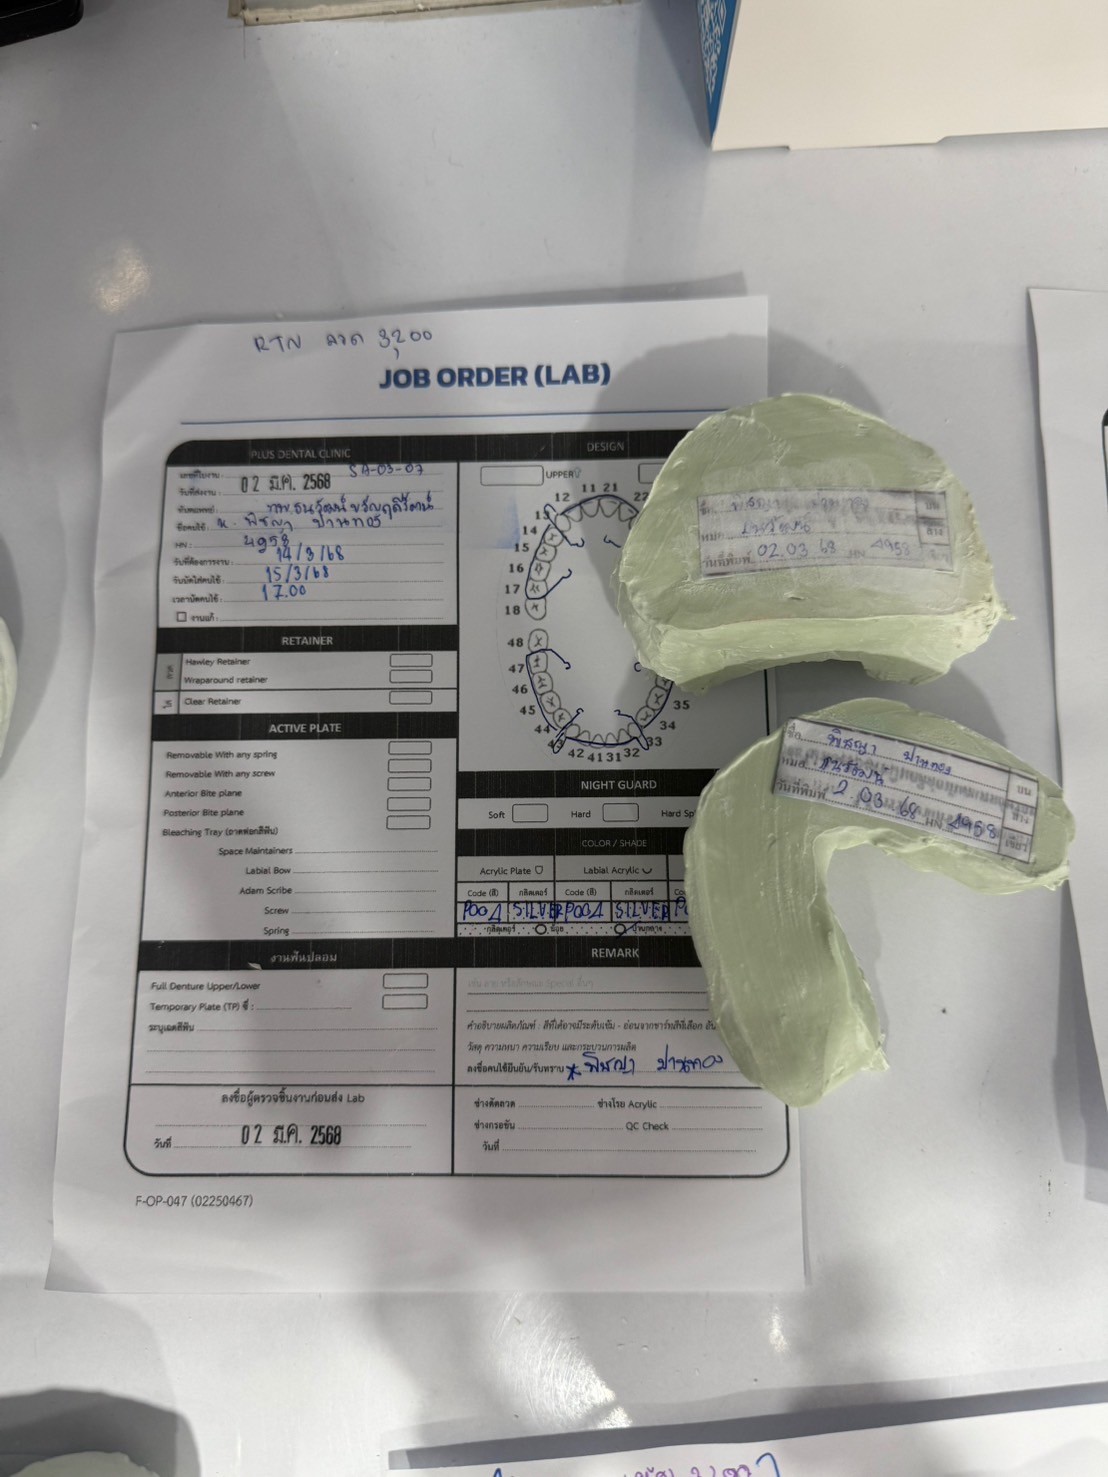 RTN ลวด 3,200
JOB ORDER (LAB)
PLUS DENTAL CLINIC
เลขที่ใบงาน : SA-03-07
วันที่ส่งงาน : 02 มี.ค. 2568
ทันตแพทย์ :
ชื่อคนไข้ : K. พิชญา ปานทอง
HN : 4958
วันที่ต้องการงาน : 14/3/68
วันนัดใส่คนไข้ : 15/3/68
เวลานัดคนไข้ : 17.00
งานแก้ :
RETAINER
Hawley Retainer
Wraparound retainer
Clear Retainer
ACTIVE PLATE
Removable With any spring
Removable With any screw
Anterior Bite plane
Posterior Bite plane
Bleaching Tray (ถาดฟอกสีฟัน)
Space Maintainers
Labial Bow
Adam Scribe
Screw
Spring
งานฟันปลอม
Full Denture Upper/Lower
Temporary Plate (TP) ซี่ :
ระบุเฉดสีฟัน
ลงชื่อผู้ตรวจชิ้นงานก่อนส่ง Lab
วันที่ 02 มี.ค. 2568
F-OP-047 (02250467)
DESIGN
UPPER
12 11 21 22
13
14
15
16
17
18
48
47
46
45
44
43
42 41 31 32
33
34
35
NIGHT GUARD
Soft Hard Hard Sp
COLOR / SHADE
Acrylic Plate Labial Acrylic
Code (สี) กลิตเตอร์ Code (สี) กลิตเตอร์ Co
P004 SILVER P004 SILVER P
กลิตเตอร์ น้อย ปานกลาง
REMARK
คำอธิบายผลิตภัณฑ์ : สีที่ได้อาจมีระดับเข้ม - อ่อนจากชาร์ทสีที่เลือก
วัสดุ ความหนา ความเรียบ และกระบวนการผลิต
ลงชื่อคนไข้ยืนยัน/รับทราบ * พิชญา ปานทอง
ช่างดัดลวด ช่างโรย Acrylic
ช่างกรอขัด QC Check
วันที่
ชื่อ พิชญา ปานทอง บน
หมอ ธนวัฒน์ ล่าง
วันที่พิมพ์ 02.03 68 HN 4958
ชื่อ พิชญา ปานทอง บน
หมอ ธนวัฒน์ ล่าง
วันที่พิมพ์ 2 03 68 HN 4958